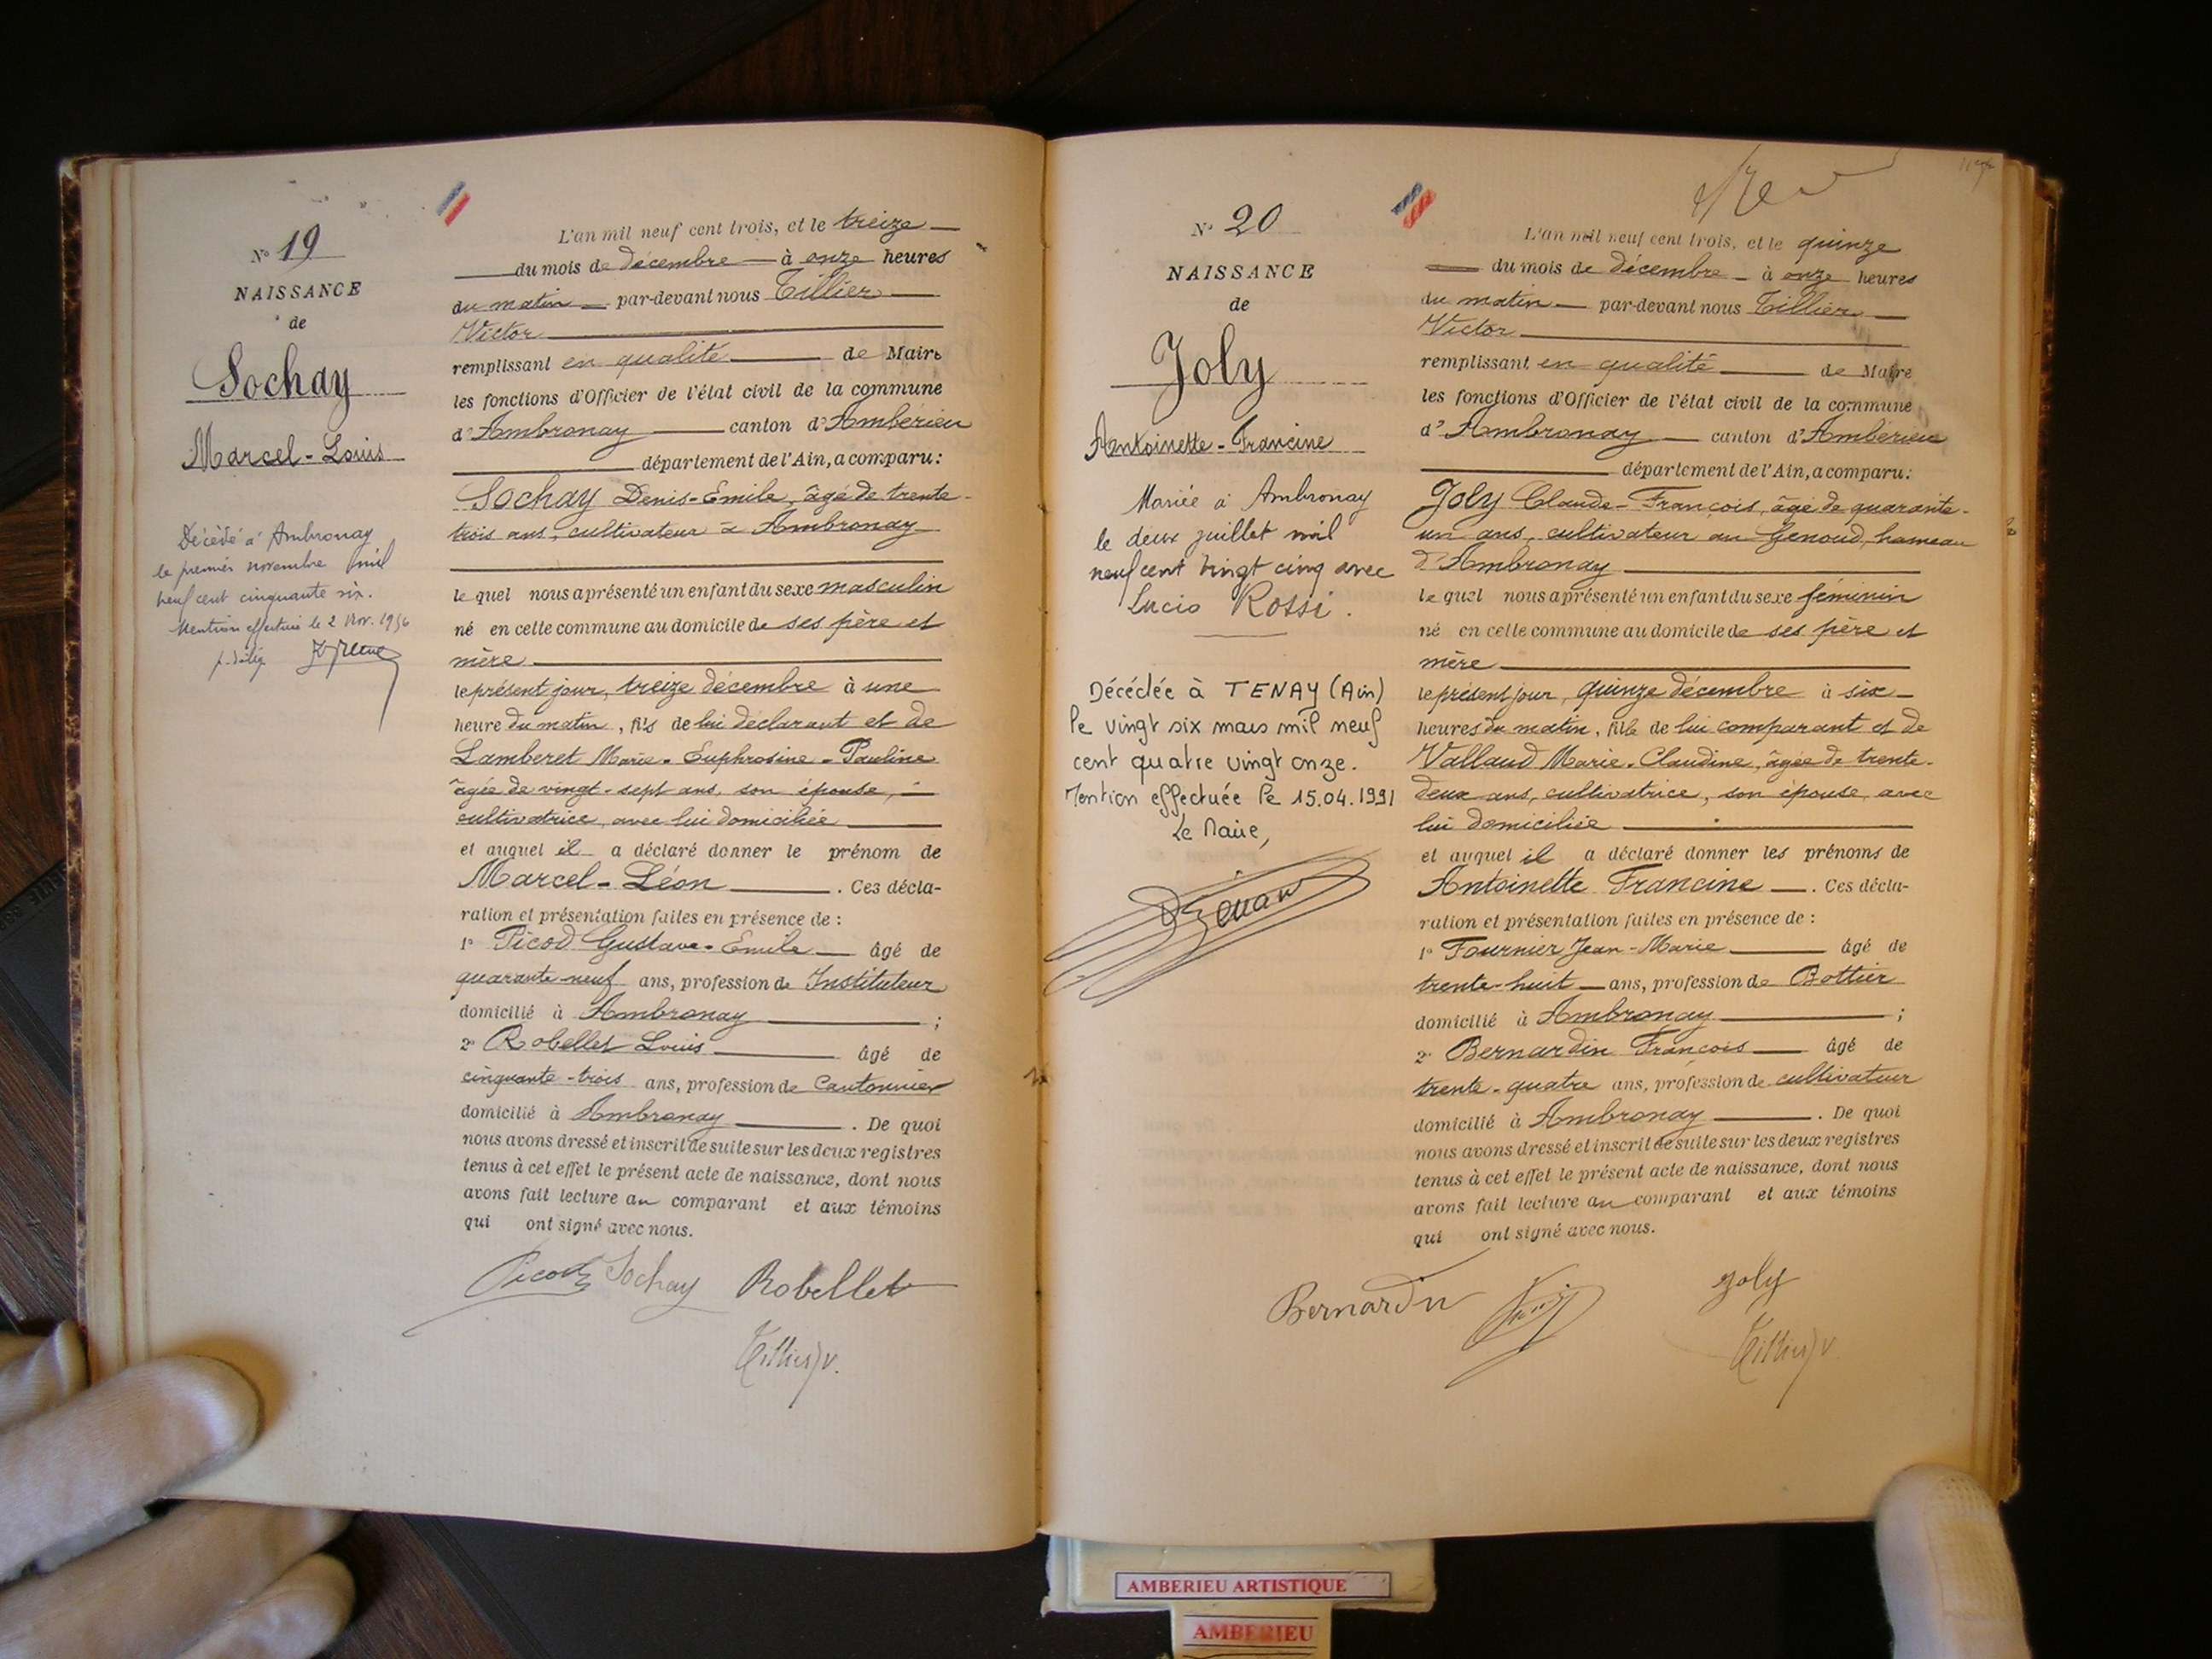 N° 19
NAISSANCE
de
Sochay
Marcel-Louis
Décédé à Ambronay
le premier novembre mil
neuf cent cinquante six.
Mention effectuée le 2 Nov. 1956
L'an mil neuf cent trois, et le treize
du mois de décembre à onze heures
du matin par-devant nous Tillier
Victor
remplissant en qualité de Maire
les fonctions d'Officier de l'état civil de la commune
d'Ambronay canton d'Ambérieu
département de l'Ain, a comparu:
Sochay Denis-Emile, âgé de trente-
trois ans, cultivateur à Ambronay
le quel nous a présenté un enfant du sexe masculin
né en cette commune au domicile de ses père et
mère
le présent jour, treize décembre à une
heure du matin, fils de lui déclarant et de
Lamberet Marie-Euphrosine-Pauline
âgée de vingt-sept ans, son épouse,
cultivatrice, avec lui domiciliée
et auquel il a déclaré donner le prénom de
Marcel-Léon . Ces décla-
ration et présentation faites en présence de :
1° Picod Gustave-Emile âgé de
quarante-neuf ans, profession de Instituteur
domicilié à Ambronay ;
2° Robellet Louis âgé de
cinquante-trois ans, profession de Cantonnier
domicilié à Ambronay . De quoi
nous avons dressé et inscrit de suite sur les deux registres
tenus à cet effet le présent acte de naissance, dont nous
avons fait lecture au comparant et aux témoins
qui ont signé avec nous.
Picod Sochay Robellet
Tillier V.
N° 20
NAISSANCE
de
Joly
Antoinette-Francine
Mariée à Ambronay
le deux juillet mil
neuf cent vingt cinq avec
Lucio Rossi.
Décédée à TENAY (Ain)
le vingt six mars mil neuf
cent quatre vingt onze.
Mention effectuée le 15.04.1991
Le Maire,
L'an mil neuf cent trois, et le quinze
du mois de décembre à onze heures
du matin par-devant nous Tillier
Victor
remplissant en qualité de Maire
les fonctions d'Officier de l'état civil de la commune
d'Ambronay canton d'Ambérieu
département de l'Ain, a comparu:
Joly Claude-François, âgé de quarante-
un ans, cultivateur au Genoud, hameau
d'Ambronay
le quel nous a présenté un enfant du sexe féminin
né en cette commune au domicile de ses père et
mère
le présent jour, quinze décembre à six
heures du matin, fille de lui comparant et de
Vallaud Marie-Claudine, âgée de trente-
deux ans, cultivatrice, son épouse, avec
lui domiciliée
et auquel il a déclaré donner les prénoms de
Antoinette Francine . Ces décla-
ration et présentation faites en présence de :
1° Fournier Jean-Marie âgé de
trente-huit ans, profession de Bottier
domicilié à Ambronay ;
2° Bernardin François âgé de
trente-quatre ans, profession de cultivateur
domicilié à Ambronay . De quoi
nous avons dressé et inscrit de suite sur les deux registres
tenus à cet effet le présent acte de naissance, dont nous
avons fait lecture au comparant et aux témoins
qui ont signé avec nous.
Bernardin Joly
Tillier V.
AMBERIEU ARTISTIQUE
AMBERIEU